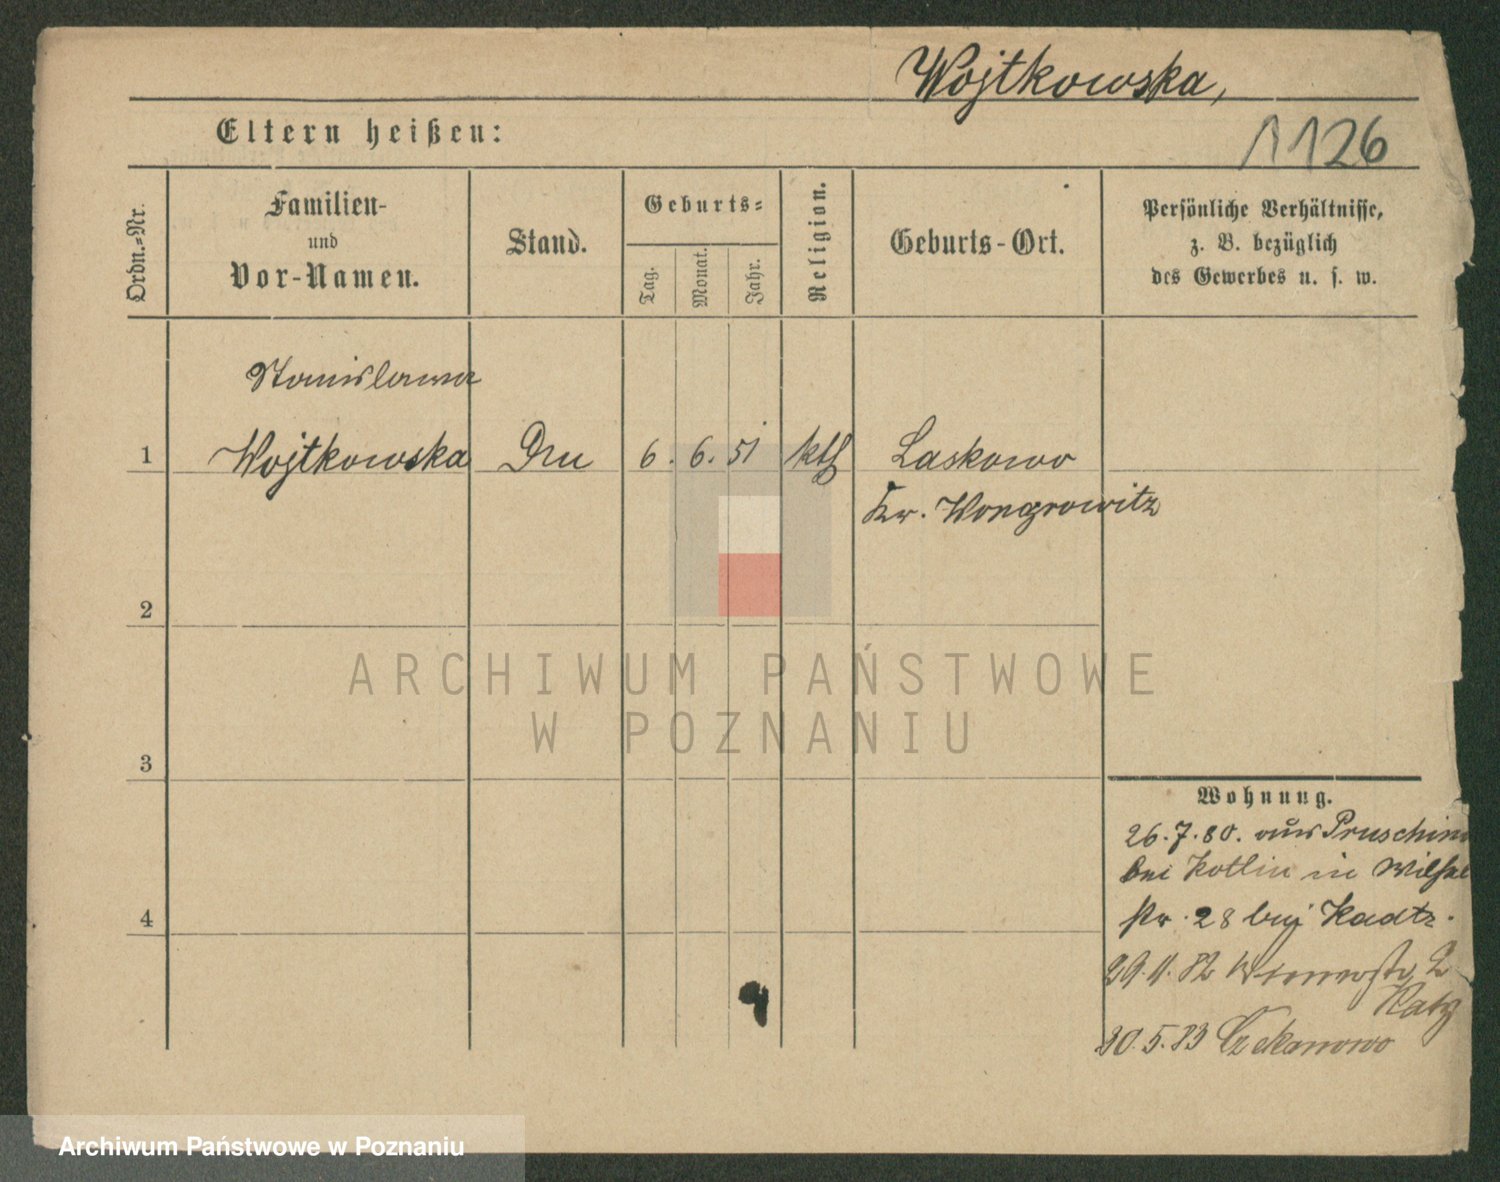 Wojtkowska,
Eltern heißen:
1126
Ordn.=Nr.
Familien-
und
Vor-Namen.
Stand.
Geburts=
Tag.
Monat.
Jahr.
Religion.
Geburts-Ort.
Persönliche Verhältnisse,
z. B. bezüglich
des Gewerbes u. s. w.
Stanislawa
1 Wojtkowska 6. 6. 51 kth Laskowo
Kr. Wongrowitz
2
3
4
Wohnung.
26.7.80. aus Pruschin
bei Kotlin in Wilhel
str. 28 bei
29.11.82 2
30.5.83 Czekanowo
ARCHIWUM PAŃSTWOWE
W POZNANIU
Archiwum Państwowe w Poznaniu